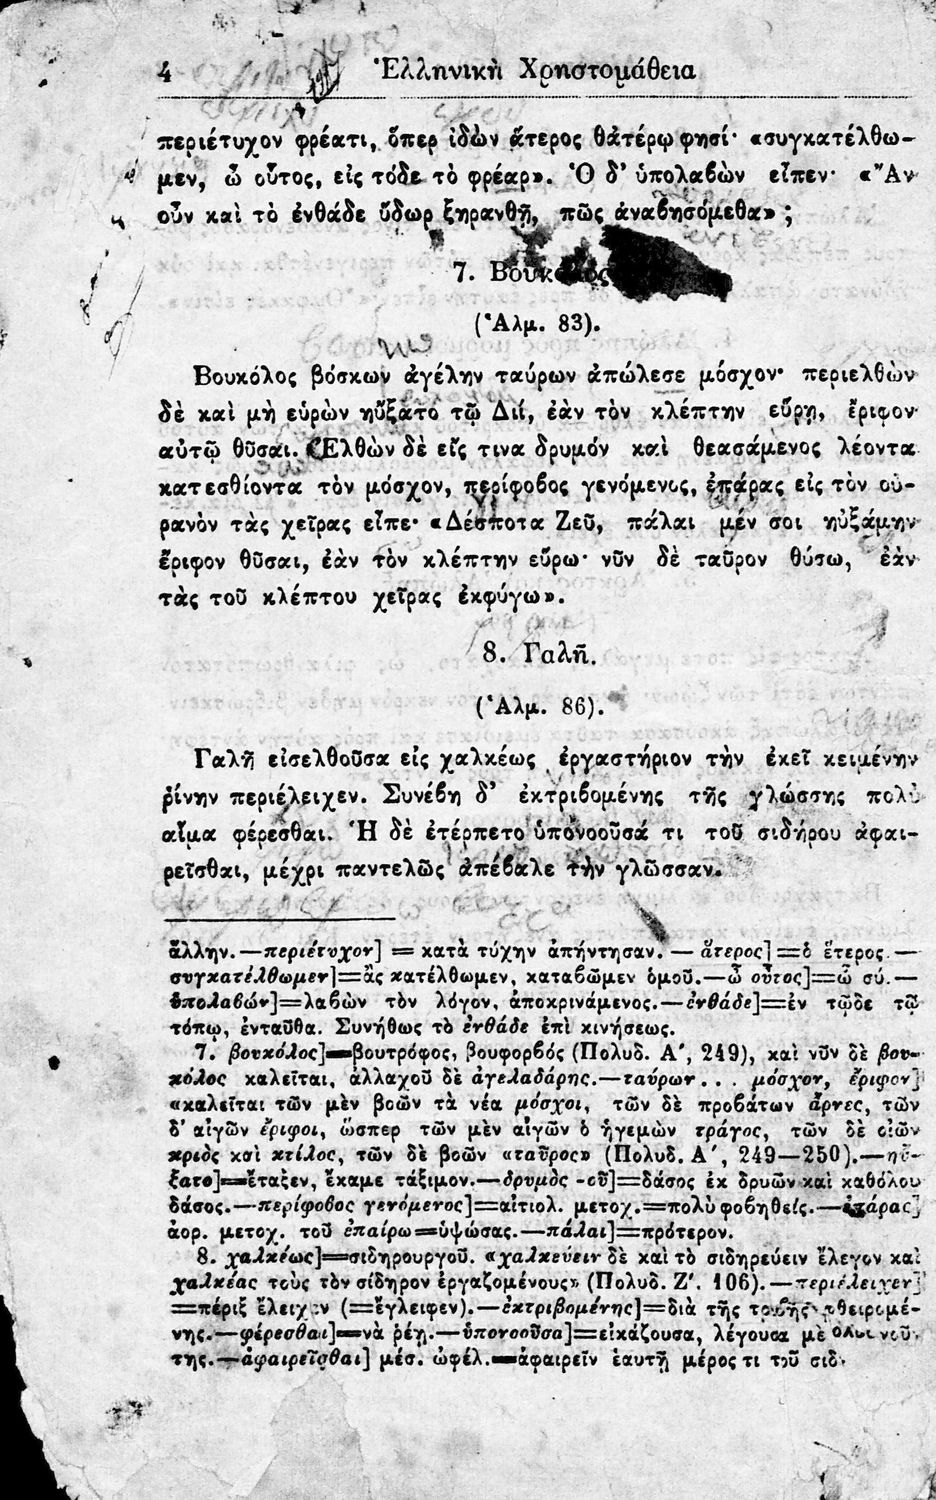 4 Ἑλληνικὴ Χρηστομάθεια
περιέτυχον φρέατι, ὅπερ ἰδὼν ἅτερος θατέρῳ φησί· «συγκατέλθω-
μεν, ὦ οὗτος, εἰς τόδε τὸ φρέαρ». Ὁ δ' ὑπολαβὼν εἶπεν· «Ἂν
οὖν καὶ τὸ ἐνθάδε ὕδωρ ξηρανθῇ, πῶς ἀναβησόμεθα» ;
7. Βουκόλος
(Ἁλμ. 83).
Βουκόλος βόσκων ἀγέλην ταύρων ἀπώλεσε μόσχον· περιελθὼν
δὲ καὶ μὴ εὑρὼν ηὔξατο τῷ Διί, ἐὰν τὸν κλέπτην εὕρῃ, ἔριφον
αὐτῷ θῦσαι. Ἐλθὼν δὲ εἴς τινα δρυμὸν καὶ θεασάμενος λέοντα
κατεσθίοντα τὸν μόσχον, περίφοβος γενόμενος, ἐπάρας εἰς τὸν οὐ-
ρανὸν τὰς χεῖρας εἶπε· «Δέσποτα Ζεῦ, πάλαι μέν σοι ηὐξάμην
ἔριφον θῦσαι, ἐὰν τὸν κλέπτην εὕρω· νῦν δὲ ταῦρον θύσω, ἐὰν
τὰς τοῦ κλέπτου χεῖρας ἐκφύγω».
8. Γαλῆ.
(Ἁλμ. 86).
Γαλῆ εἰσελθοῦσα εἰς χαλκέως ἐργαστήριον τὴν ἐκεῖ κειμένην
ῥίνην περιέλειχεν. Συνέβη δ' ἐκτριβομένης τῆς γλώσσης πολὺ
αἷμα φέρεσθαι. Ἡ δὲ ἐτέρπετο ὑπονοοῦσά τι τοῦ σιδήρου ἀφαι-
ρεῖσθαι, μέχρι παντελῶς ἀπέβαλε τὴν γλῶσσαν.
ἄλλην.—περιέτυχον] = κατὰ τύχην ἀπήντησαν. — ἅτερος]=ὁ ἕτερος.—
συγκατέλθωμεν]=ἂς κατέλθωμεν, καταβῶμεν ὁμοῦ.—ὦ οὗτος]=ὦ σύ.—
ὑπολαβών]=λαβὼν τὸν λόγον, ἀποκρινάμενος.—ἐνθάδε]=ἐν τῷδε τῷ
τόπῳ, ἐνταῦθα. Συνήθως τὸ ἐνθάδε ἐπὶ κινήσεως.
7. βουκόλος]=βουτρόφος, βουφορβός (Πολυδ. Α', 249), καὶ νῦν δὲ βου-
κόλος καλεῖται, ἀλλαχοῦ δὲ ἀγελαδάρης.—ταύρων... μόσχον, ἔριφον]
«καλεῖται τῶν μὲν βοῶν τὰ νέα μόσχοι, τῶν δὲ προβάτων ἄρνες, τῶν
δ' αἰγῶν ἔριφοι, ὥσπερ τῶν μὲν αἰγῶν ὁ ἡγεμὼν τράγος, τῶν δὲ οἰῶν
κριὸς καὶ κτίλος, τῶν δὲ βοῶν «ταῦρος» (Πολυδ. Α', 249—250).—ηὔ-
ξατο]=ἔταξεν, ἔκαμε τάξιμον.—δρυμὸς -οῦ]=δάσος ἐκ δρυῶν καὶ καθόλου
δάσος.—περίφοβος γενόμενος]=αἰτιολ. μετοχ.=πολὺ φοβηθείς.—ἐπάρας]
ἀορ. μετοχ. τοῦ ἐπαίρω=ὑψώσας.—πάλαι]=πρότερον.
8. χαλκέως]=σιδηρουργοῦ. «χαλκεύειν δὲ καὶ τὸ σιδηρεύειν ἔλεγον καὶ
χαλκέας τοὺς τὸν σίδηρον ἐργαζομένους» (Πολυδ. Ζ'. 106).—περιέλειχεν]
=πέριξ ἔλειχεν (=ἔγλειφεν).—ἐκτριβομένης]=διὰ τῆς τριβῆς φθειρομέ-
νης.—φέρεσθαι]=νὰ ῥέῃ.—ὑπονοοῦσα]=εἰκάζουσα, λέγουσα μὲ
της.—ἀφαιρεῖσθαι] μέσ. ὠφέλ.=ἀφαιρεῖν ἑαυτῇ μέρος τι τοῦ σιδ